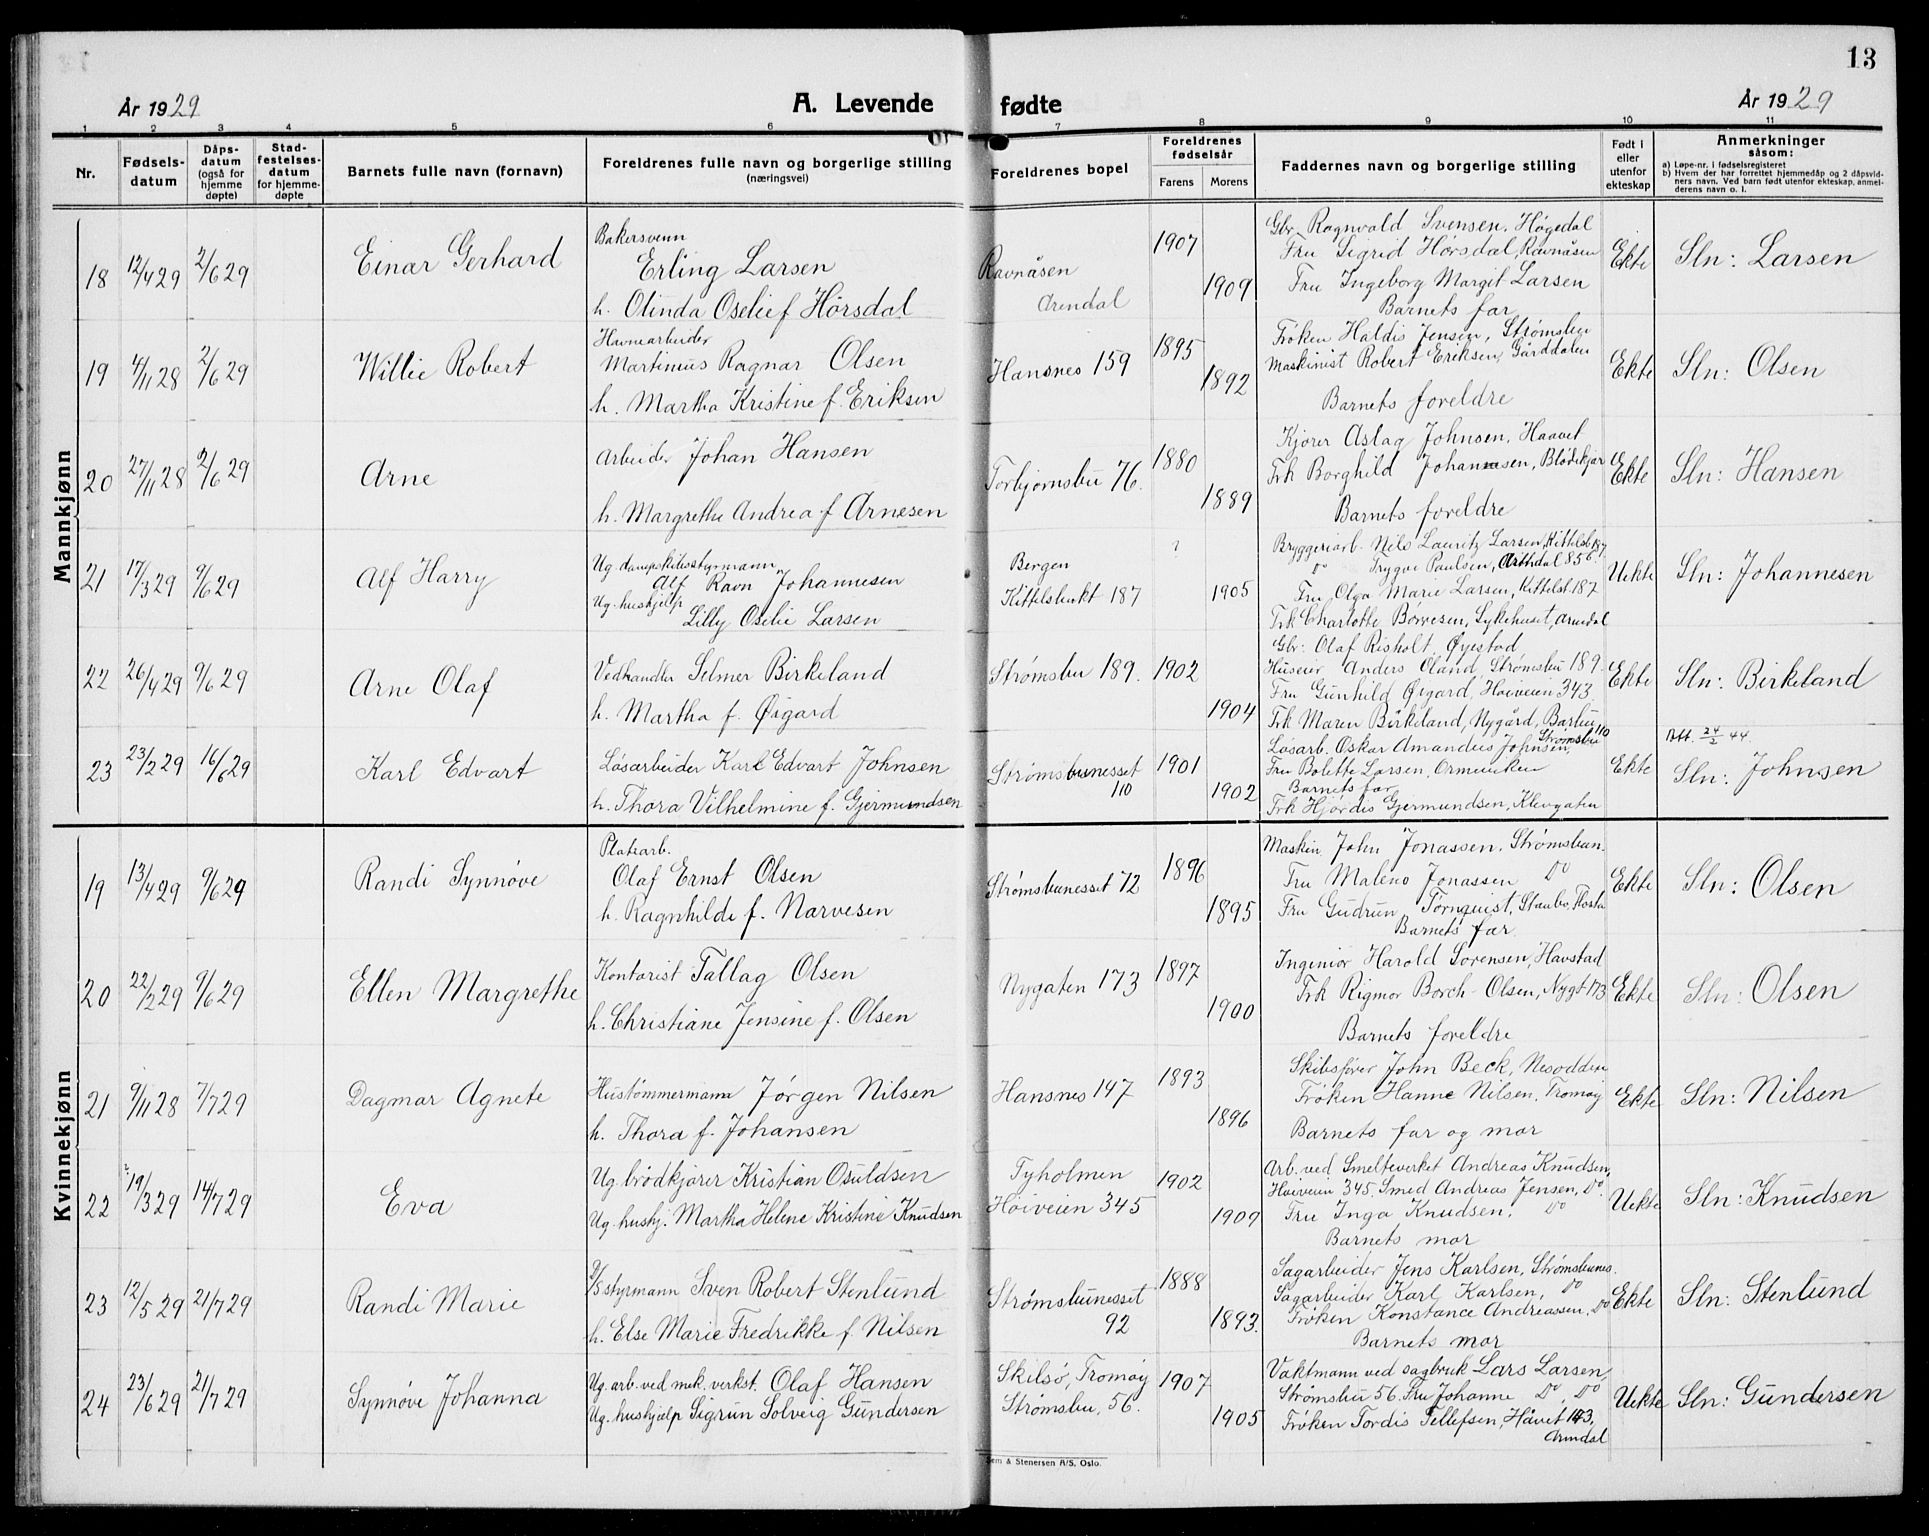 13
År 1929 A. Levende fødte År 1929
1 2 3 4 5 6 7 8 9 10 11
Nr.
Fødsels-
datum
Dåps-
datum
(også for
hjemme
døpte)
Stad-
festelses-
datum
for hjemme-
døpte
Barnets fulle navn (fornavn)
Foreldrenes fulle navn og borgerlige stilling
(næringsvei)
Foreldrenes bopel
Foreldrenes
fødselsår
Farens Morens
Faddernes navn og borgerlige stilling
Født i
eller
utenfor
ekteskap
Anmerkninger
såsom:
a) Løpe-nr. i fødselsregisteret
b) Hvem der har forrettet hjemmedåp og 2 dåpsvid-
ners navn. Ved barn født utenfor ekteskap, anmel-
derens navn o. l.
Mannkjønn
18 12/4 29 2/6 29 Einar Gerhard
Bakersvenn
Erling Larsen
h. Olinda Oselie f Hørsdal
Ravnåsen
Arendal
1907
1909
Gbr. Ragnvald Svensen, Høgedal
Fru Sigrid Hørsdal, Ravnåsen
Fru Ingeborg Margit Larsen
Barnets far
Ekte
Sln: Larsen
19 4/11 28 2/6 29 Willie Robert
Havnearbeider
Martinius Ragnar Olsen
h. Martha Kristine f. Eriksen
Hansnes 159
1895
1892
Frøken Haldis Jensen, Strømsbu
Maskinist Robert Eriksen, Gårddalen
Barnets foreldre
Ekte
Sln: Olsen
20 27/11 28 2/6 29 Arne
Arbeider Johan Hansen
h. Margrethe Andrea f Arnesen
Torbjørnsbu 76.
1880
1889
Kjører Aslag Johnsen, Haavet
Frk Borghild Johannesen, Blødekjær
Barnets foreldre
Ekte
Sln: Hansen
21 17/3 29 9/6 29 Alf Harry
Ug. dampskibsstyrmann
Alf Ravn Johannesen
Ug. hushjelp
Lilly Oselie Larsen
Bergen
Kittelsbukt 187
?
1905
Bryggeriarb. Nils Lauritz Larsen, Kittelsb 187
Do Trygve Paulsen, Arthdal 856.
Fru Olga Marie Larsen, Kittelsb. 187
Frk Charlotte Børresen, Sykehuset, Arendal
Uekte
Sln: Johannesen
22 26/4 29 9/6 29 Arne Olaf
Vedhandler Selmer Birkeland
h. Martha f. Øigard
Strømsbu 189.
1902
1904
Gbr: Olaf Risholt, Øyestad
Huseier Anders Oland, Strømsbu 189.
Fru Gunhild Øigard, Høiveien 343
Frk Maren Birkeland, Nygård, Barbu
Ekte
Sln: Birkeland
23 23/2 29 16/6 29 Karl Edvart
Løsarbeider Karl Edvart Johnsen
h. Thora Vilhelmine f. Gjermundsen
Strømsbunesset
110
1901
1902
Løsarb. Oskar Amandus Johnsen, Strømsbu 110
Fru Bolette Larsen, Ormviken
Barnets far
Frk Hjørdis Gjermundsen, Klevgaten
Ekte
Att. 24/2 44.
Sln: Johnsen
Kvinnekjønn
19 13/4 29 9/6 29 Randi Synnøve
Platearb.
Olaf Ernst Olsen
h. Ragnhilde f. Narvesen
Strømsbunesset 72
1896
1895
Maskin. John Jonassen, Strømsbun.
Fru Maleno Jonassen Do
Fru Gudrun Tørnquist, Staubo, Flosta
Barnets far
Ekte
Sln: Olsen
20 22/2 29 9/6 29 Ellen Margrethe
Kontorist Tallag Olsen
h. Christiane Jensine f. Olsen
Nygaten 173
1897
1900
Ingeniør Harold Sørensen, Havstad
Frk Rigmor Borch-Olsen, Nygt 173
Barnets foreldre
Ekte
Sln: Olsen
21 9/11 28 7/7 29 Dagmar Agnete
Hustømmermann Jørgen Nilsen
h. Thora f. Johansen
Hansnes 147
1893
1896
Skibsfører John Beck, Nesodden
Frøken Hanne Nilsen, Tromøy
Barnets far og mor
Ekte
Sln: Nilsen
22 19/3 29 14/7 29 Eva
Ug. brødkjører Kristian Osuldsen
Ug. hushj. Martha Helene Kristine Knudsen
Tyholmen
Høiveien 345
1902
1909
Arb. ved Smelteverket Andreas Knudsen,
Høiveien 345. Smed Andreas Jensen, Do.
Fru Inga Knudsen, Do
Barnets mor
Uekte
Sln: Knudsen
23 12/5 29 21/7 29 Randi Marie
D/S styrmann Sven Robert Stenlund
h. Else Marie Fredrikke f. Nilsen
Strømsbunesset
92
1888
1893.
Sagarbeider Jens Karlsen, Strømsbunes.
Sagarbeider Karl Karlsen, Do
Frøken Konstance Andreassen, Do
Barnets mor
Ekte
Sln: Stenlund
24 23/6 29 21/7 29 Synnøve Johanna
Ug. arb. ved mek. verkst. Olaf Hansen
Ug. hushjelp Sigrun Solveig Gundersen
Skilsø, Tromøy
Strømsbu, 56.
1907
1905
Vaktmann ved sagbruk Lars Larsen,
Strømsbu 56. Fru Johanne Do, Do
Frøken Tordis Tellefsen, Håvet 143,
Arendal
Uekte
Sln: Gundersen
Sem & Stenersen A/S, Oslo.